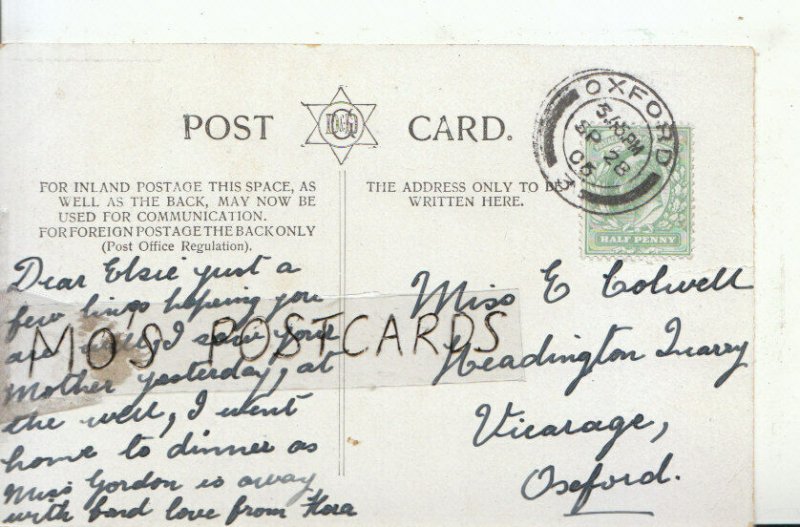 POST CARD.
FOR INLAND POSTAGE THIS SPACE, AS
WELL AS THE BACK, MAY NOW BE
USED FOR COMMUNICATION.
FOR FOREIGN POSTAGE THE BACK ONLY
(Post Office Regulation).
THE ADDRESS ONLY TO BE
WRITTEN HERE.
OXFORD
5.45PM
SP 28
05
3
HALF PENNY
Dear Elsie just a
few lines hoping you
are well, I saw your
Mother yesterday, at
the well, I went
home to dinner as
Miss Gordon is away
with fond love from Flora
Miss E Colwell
Headington Quarry
Vicarage,
Oxford.
MO'S POSTCARDS